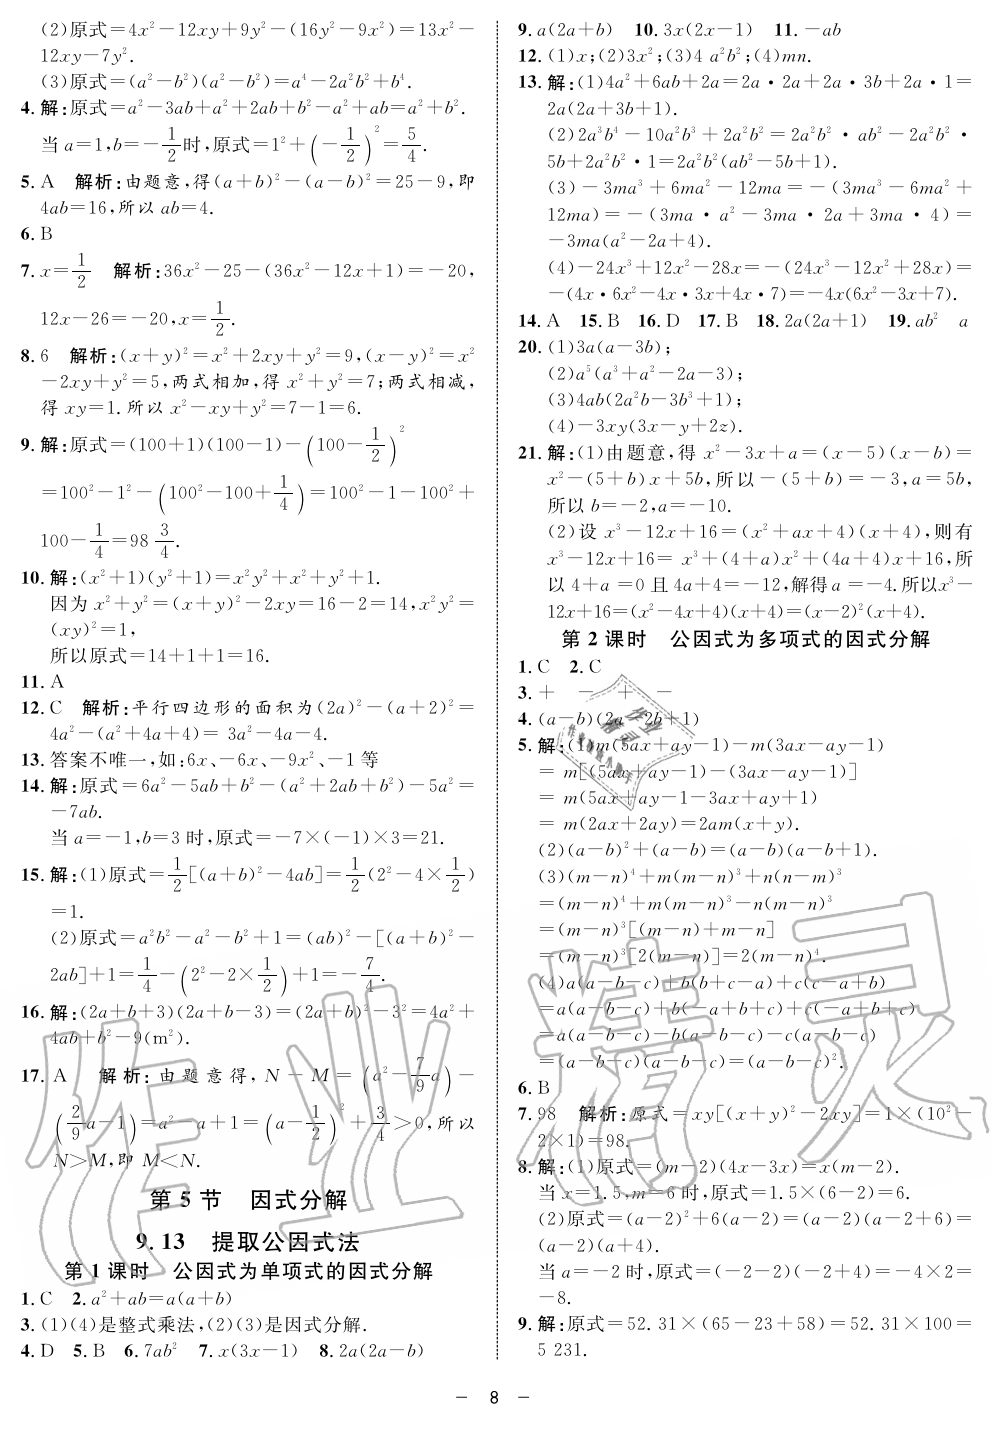 (2)原式=4x²-12xy+9y²-(16y²-9x²)=13x²-
12xy-7y².
(3)原式=(a²-b²)(a²-b²)=a⁴-2a²b²+b⁴.
4.解:原式=a²-3ab+a²+2ab+b²-a²+ab=a²+b².
当a=1,b=-1/2时,原式=1²+(-1/2)²=5/4.
5.A 解析:由题意,得(a+b)²-(a-b)²=25-9,即
4ab=16,所以ab=4.
6.B
7.x=1/2 解析:36x²-25-(36x²-12x+1)=-20,
12x-26=-20,x=1/2.
8.6 解析:(x+y)²=x²+2xy+y²=9,(x-y)²=x²
-2xy+y²=5,两式相加,得x²+y²=7;两式相减,
得xy=1.所以x²-xy+y²=7-1=6.
9.解:原式=(100+1)(100-1)-(100-1/2)²
=100²-1²-(100²-100+1/4)=100²-1-100²+
100-1/4=98 3/4.
10.解:(x²+1)(y²+1)=x²y²+x²+y²+1.
因为x²+y²=(x+y)²-2xy=16-2=14,x²y²=
(xy)²=1,
所以原式=14+1+1=16.
11.A
12.C 解析:平行四边形的面积为(2a)²-(a+2)²=
4a²-(a²+4a+4)= 3a²-4a-4.
13.答案不唯一,如:6x、-6x、-9x²、-1等
14.解:原式=6a²-5ab+b²-(a²+2ab+b²)-5a²=
-7ab.
当a=-1,b=3时,原式=-7×(-1)×3=21.
15.解:(1)原式=1/2[(a+b)²-4ab]=1/2(2²-4×1/2)
=1.
(2)原式=a²b²-a²-b²+1=(ab)²-[(a+b)²-
2ab]+1=1/4-(2²-2×1/2)+1=-7/4.
16.解:(2a+b+3)(2a+b-3)=(2a+b)²-3²=4a²+
4ab+b²-9(m²).
17.A 解析:由题意得,N-M=(a²-7/9a)-
(2/9a-1)=a²-a+1=(a-1/2)²+3/4>0,所以
N>M,即M<N.
第5节 因式分解
9.13 提取公因式法
第1课时 公因式为单项式的因式分解
1.C 2.a²+ab=a(a+b)
3.(1)(4)是整式乘法,(2)(3)是因式分解.
4.D 5.B 6.7ab² 7.x(3x-1) 8.2a(2a-b)
9.a(2a+b) 10.3x(2x-1) 11.-ab
12.(1)x;(2)3x²;(3)4 a²b²;(4)mn.
13.解:(1)4a²+6ab+2a=2a·2a+2a·3b+2a·1=
2a(2a+3b+1).
(2)2a³b⁴-10a²b³+2a²b²=2a²b²·ab²-2a²b²·
5b+2a²b²·1=2a²b²(ab²-5b+1).
(3)-3ma³+6ma²-12ma=-(3ma³-6ma²+
12ma)=-(3ma·a²-3ma·2a+3ma·4)=
-3ma(a²-2a+4).
(4)-24x³+12x²-28x=-(24x³-12x²+28x)=
-(4x·6x²-4x·3x+4x·7)=-4x(6x²-3x+7).
14.A 15.B 16.D 17.B 18.2a(2a+1) 19.ab² a
20.(1)3a(a-3b);
(2)a⁵(a³+a²-2a-3);
(3)4ab(2a²b-3b³+1);
(4)-3xy(3x-y+2z).
21.解:(1)由题意,得x²-3x+a=(x-5)(x-b)=
x²-(5+b)x+5b,所以-(5+b)=-3,a=5b,
所以b=-2,a=-10.
(2)设x³-12x+16=(x²+ax+4)(x+4),则有
x³-12x+16= x³+(4+a)x²+(4a+4)x+16,所
以4+a =0且4a+4=-12,解得a =-4.所以x³-
12x+16=(x²-4x+4)(x+4)=(x-2)²(x+4).
第2课时 公因式为多项式的因式分解
1.C 2.C
3.+ - + -
4.(a-b)(2a-2b+1)
5.解:(1)m(5ax+ay-1)-m(3ax-ay-1)
= m[(5ax+ay-1)-(3ax-ay-1)]
= m(5ax+ay-1-3ax+ay+1)
= m(2ax+2ay)=2am(x+y).
(2)(a-b)²+(a-b)=(a-b)(a-b+1).
(3)(m-n)⁴+m(m-n)³+n(n-m)³
=(m-n)⁴+m(m-n)³-n(m-n)³
=(m-n)³[(m-n)+m-n]
=(m-n)³[2(m-n)]=2(m-n)⁴.
(4)a(a-b-c)+b(b+c-a)+c(c-a+b)
=a(a-b-c)+b(-a+b+c)+c(-a+b+c)
=a(a-b-c)-b(a-b-c)-c(a-b-c)
=(a-b-c)(a-b-c)=(a-b-c)².
6.B
7.98 解析:原式=xy[(x+y)²-2xy]=1×(10²-
2×1)=98.
8.解:(1)原式=(m-2)(4x-3x)=x(m-2).
当x=1.5,m=6时,原式=1.5×(6-2)=6.
(2)原式=(a-2)²+6(a-2)=(a-2)(a-2+6)=
(a-2)(a+4).
当a=-2时,原式=(-2-2)(-2+4)=-4×2=
-8.
9.解:原式=52.31×(65-23+58)=52.31×100=
5 231.
- 8 -
作业精灵